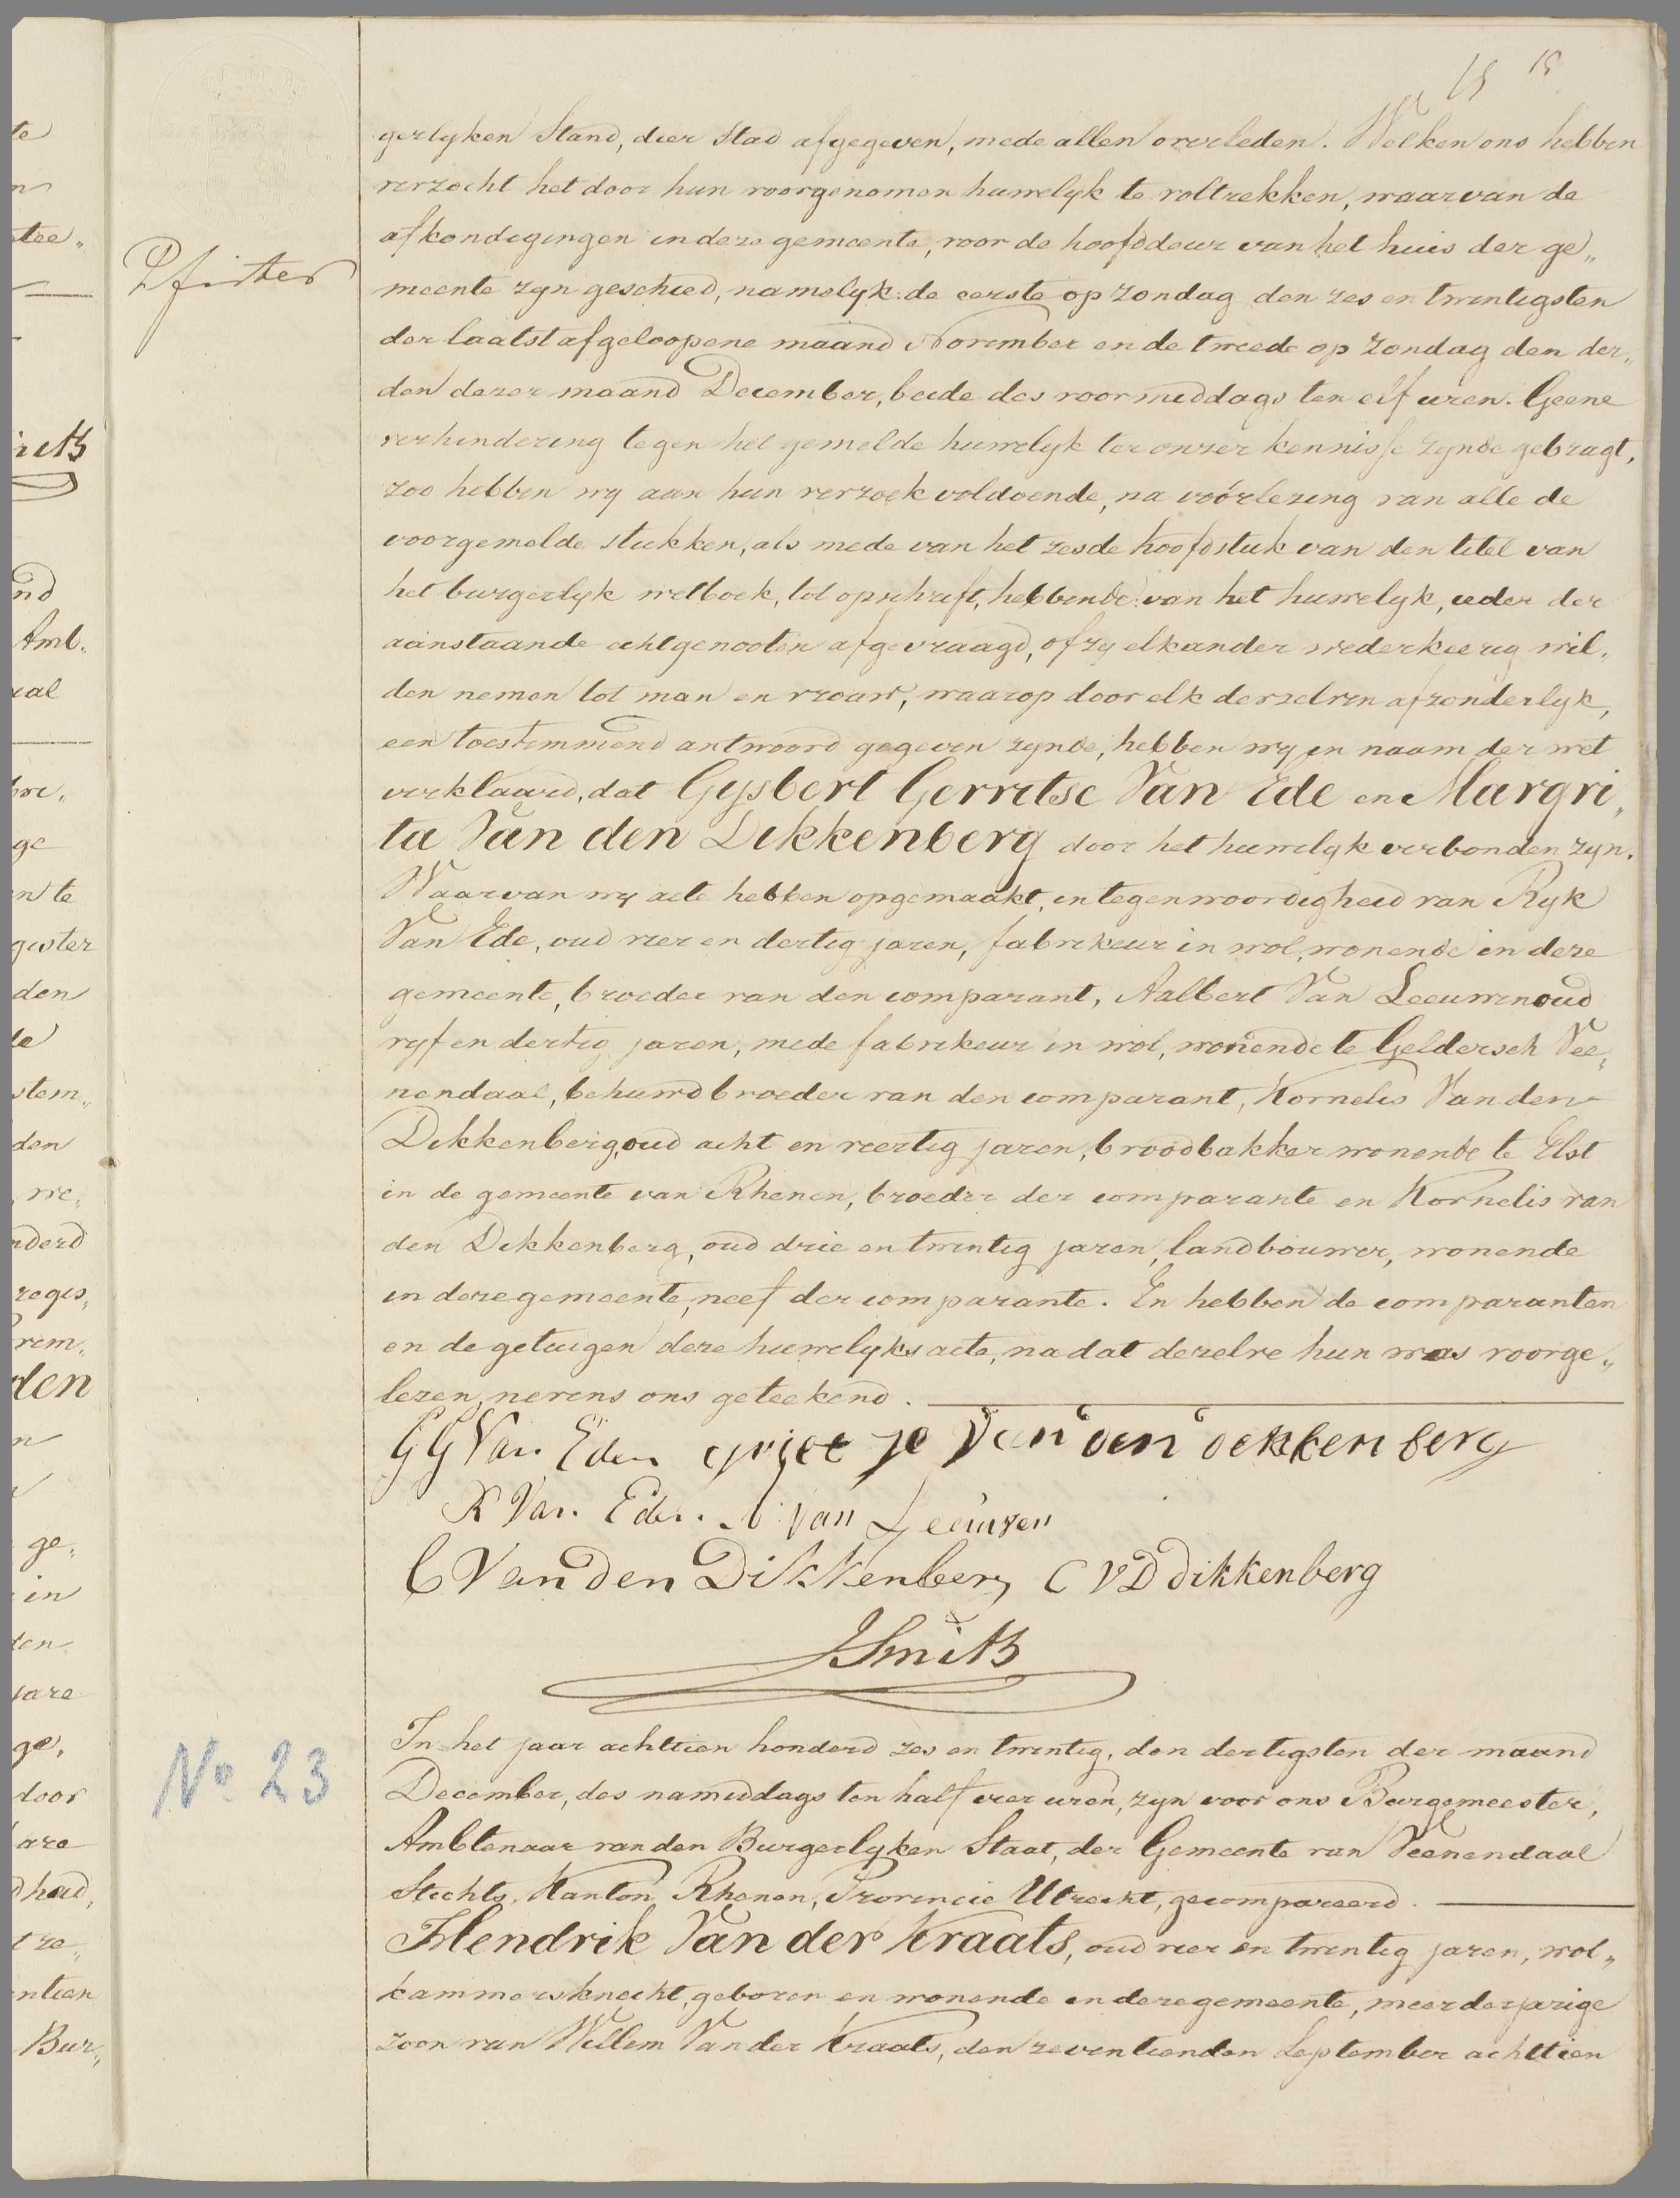 15 15
gerlyken Stand, dier Stad afgegeven, mede allen overleden. Welken ons hebben
verzocht het door hun voorgenomen huwelyk te voltrekken, waarvan de
afkondigingen in deze gemeente, voor de hoofddeur van het huis der ge„
Pfister
meente zyn geschied, namelyk: de eerste op Zondag den zes en twintigsten
der laatst afgeloopene maand November en de tweede op Zondag den der„
den dezer maand December, beide des voormiddags ten elf uren. Geene
verhindering tegen het gemelde huwelyk ter onzer kennisse zynde gebragt,
zoo hebben wy aan hun verzoek voldoende, na vóórlezing van alle de
voorgemelde stukken, als mede van het zesde hoofdstuk van den titel van
het burgerlyk wetboek, tot opschrift, hebbende: van het huwelyk, ieder der
aanstaande echtgenooten afgevraagd, of zy elkander wederkeerig wil„
den nemen tot man en vrouw, waarop door elk derzelven afzonderlyk,
een toestemmend antwoord gegeven zynde, hebben wy in naam der wet
verklaard, dat Gysbert Gerritse Van Ede en Margri„
ta Van den Dikkenberg door het huwelyk verbonden zyn.
Waarvan wy acte hebben opgemaakt, in tegenwoordigheid van Ryk
Van Ede, oud vier en dertig jaren, fabrikeur in wol, wonende in deze
gemeente, broeder van den comparant, Aalbert Van Leeuwen oud
vyf en dertig jaren, mede fabrikeur in wol, wonende te Geldersch Vee„
nendaal, behuwd broeder van den comparant, Kornelis Van den
Dikkenberg, oud acht en veertig jaren, broodbakker wonende te Elst
in de gemeente van Rhenen, broeder der comparante en Kornelis van
den Dikkenberg, oud drie en twintig jaren, landbouwer, wonende
in deze gemeente, neef der comparante. En hebben de comparanten
en de getuigen deze huwelyks acte, na dat dezelve hun was voorge„
lezen, nevens ons geteekend.
G G Van Eden grietje van den dekkenberg
R Van Eden A van Leeuwen
C Van den Dikkenberg C V D dikkenberg
J Smits
No 23
In het jaar achttien honderd zes en twintig, den dertigsten der maand
December, des namiddags ten half vier uren, zyn voor ons Burgemeester,
Ambtenaar van den Burgerlyken Staat, der Gemeente van Veenendaal
Stichts, Kanton Rhenen, Provincie Utrecht, gecompareerd.
Hendrik Van der Kraats, oud vier en twintig jaren, wol„
kammersknecht, geboren en wonende in deze gemeente, meerderjarige
zoon van Willem Van der Kraats, den zeventienden September achttien